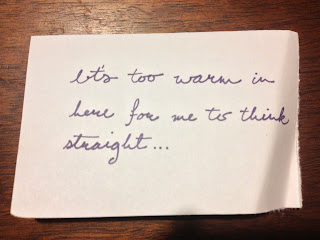 It's too warm in
here for me to think
straight...